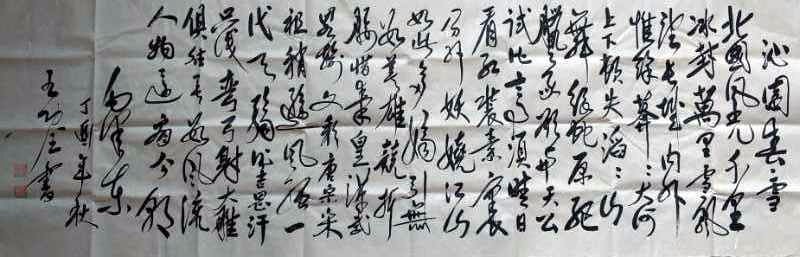 沁園春雪
北國風光千里
冰封萬里雪飄
望長城内外
惟餘莽〻大河
上下頓失滔〻山
舞銀蛇原馳
臘象欲與天公
試比高須晴日
看紅裝素裹
分外妖嬈江山
如此多嬌引無
數英雄競折
腰惜秦皇漢武
略輸文彩唐宗宋
祖稍遜風騷一
代天驕成吉思汗
只識彎弓射大雕
俱往矣數風流
人物還看今朝
毛澤東
丁酉年秋
王功書